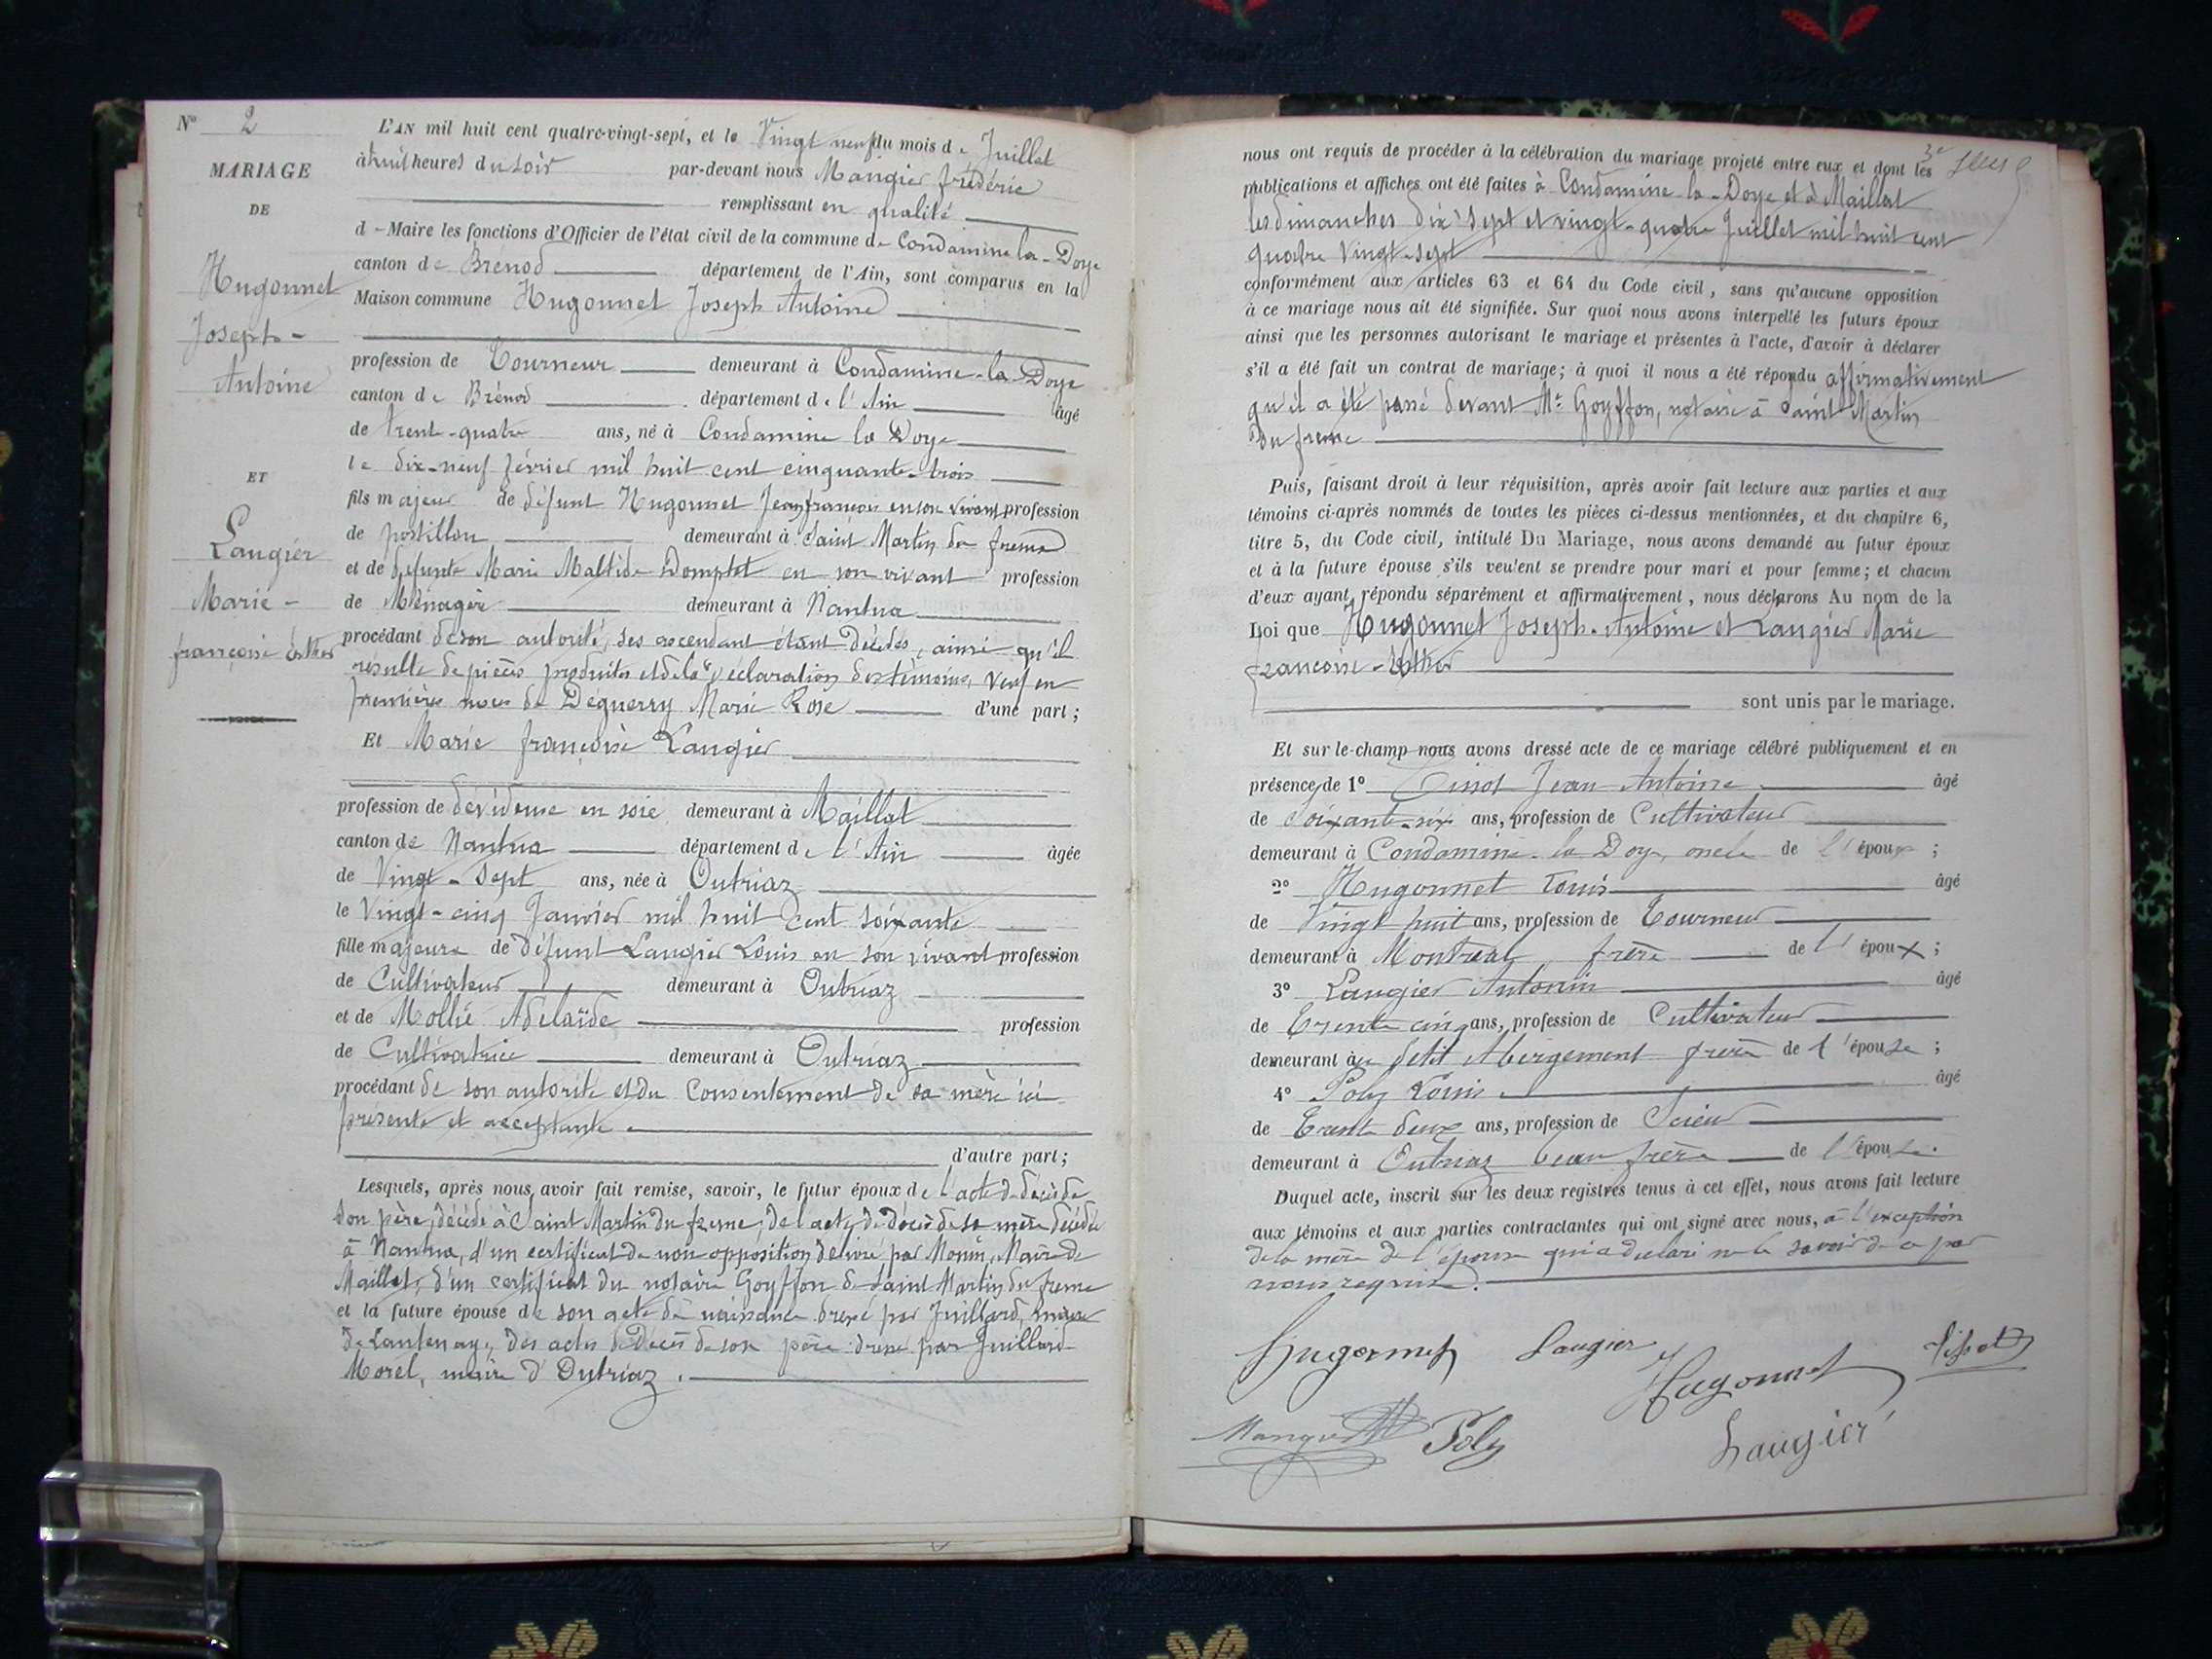 N° 2
MARIAGE
DE
Hugonnet
Joseph-
Antoine
ET
Laugier
Marie-
françoise Esther
L'AN mil huit cent quatre-vingt-sept, et le Vingt neuf du mois de Juillet
à huit heures du soir par-devant nous Mangier frédéric
remplissant en qualité
de Maire les fonctions d'Officier de l'état civil de la commune de Condamine la-Doye
canton de Brenod département de l'Ain, sont comparus en la
Maison commune Hugonnet Joseph Antoine
profession de Tourneur demeurant à Condamine-la-Doye
canton de Brénod département de l'Ain âgé
de trent-quatre ans, né à Condamine la Doye
le dix-neuf février mil huit cent cinquante-trois
fils majeur de défunt Hugonnet Jean françois en son vivant profession
de postillon demeurant à Saint Martin du frene
et de défunte Marie Maltide Domptet en son vivant profession
de Ménagère demeurant à Nantua
procédant de son autorité, ses ascendant étant décédés, ainsi qu'il
résulte de pièces produites et de la déclaration des témoins, veuf en
premières noces de Déguerry Marie Rose d'une part;
Et Marie françoise Laugier
profession de dévideuse en soie demeurant à Maillat
canton de Nantua département de l'Ain âgée
de Vingt-sept ans, née à Outriaz
le Vingt-cinq Janvier mil huit cent soixante
fille majeure de défunt Laugier Louis en son vivant profession
de Cultivateur demeurant à Outriaz
et de Mollié Adelaïde profession
de Cultivatrice demeurant à Outriaz
procédant de son autorité et du consentement de sa mère ici
présente et acceptante
d'autre part;
Lesquels, après nous avoir fait remise, savoir, le futur époux de l'acte de décès de
son père, décédé à Saint Martin du frene, de l'acte de décès de sa mère décédée
à Nantua, d'un certificat de non opposition delivré par Monin, Maire de
Maillat, d'un certificat du notaire Goyffon de Saint Martin du frene
et la future épouse de son acte de naissance dressé par Juillard, maire
de Lantenay, des actes de Décès de son père dressé par Juillard
Morel, maire d'Outriaz.
3e
nous ont requis de procéder à la célébration du mariage projeté entre eux et dont les
publications et affiches ont été faites à Condamine-la-Doye et à Maillat
les dimanches dix sept et vingt-quatre Juillet mil huit cent
quatre vingt-sept
conformément aux articles 63 et 64 du Code civil, sans qu'aucune opposition
à ce mariage nous ait été signifiée. Sur quoi nous avons interpellé les futurs époux
ainsi que les personnes autorisant le mariage et présentes à l'acte, d'avoir à déclarer
s'il a été fait un contrat de mariage; à quoi il nous a été répondu affirmativement
qu'il a été passé devant Me Goyffon, notaire à Saint Martin
du frene
Puis, faisant droit à leur réquisition, après avoir fait lecture aux parties et aux
témoins ci-après nommés de toutes les pièces ci-dessus mentionnées, et du chapitre 6,
titre 5, du Code civil, intitulé Du Mariage, nous avons demandé au futur époux
et à la future épouse s'ils veulent se prendre pour mari et pour femme; et chacun
d'eux ayant répondu séparément et affirmativement, nous déclarons Au nom de la
Loi que Hugonnet Joseph-Antoine et Laugier Marie
françoise-Esther
sont unis par le mariage.
Et sur-le-champ nous avons dressé acte de ce mariage célébré publiquement et en
présence de 1° Tissot Jean Antoine âgé
de Soixante-six ans, profession de Cultivateur
demeurant à Condamine-la Doye, oncle de l'époux;
2° Hugonnet Louis âgé
de Vingt huit ans, profession de Tourneur
demeurant à Montréal frère de l'époux;
3° Laugier Antonin âgé
de Trente cinq ans, profession de Cultivateur
demeurant au Petit Abergement frère de l'épouse;
4° Poly Louis âgé
de Trente deux ans, profession de Scieur
demeurant à Outriaz beau frère de l'épouse.
Duquel acte, inscrit sur les deux registres tenus à cet effet, nous avons fait lecture
aux témoins et aux parties contractantes qui ont signé avec nous, à l'exception
de la mère de l'épouse qui a déclaré ne le savoir de ce par
nous requise.
Hugonnet Laugier Hugonnet Tissot
Mangier Poly Laugier